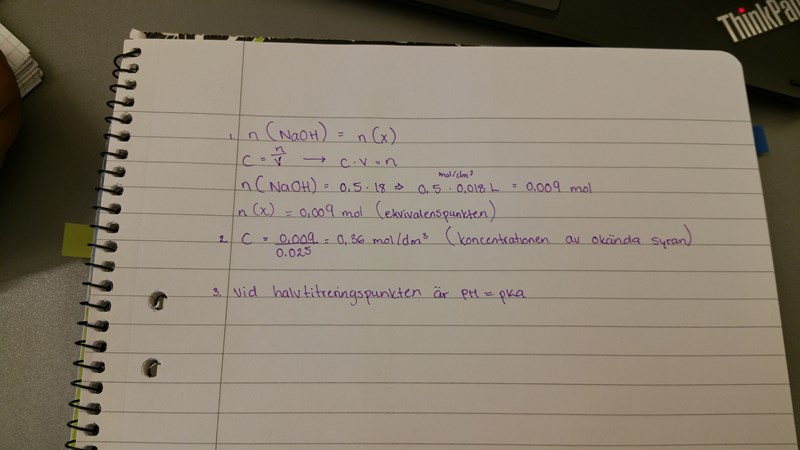 ThinkPa
1. n (NaOH) = n(x)
C = n/V → C·V = n
n (NaOH) = 0,5 · 18 ⇒ 0,5 mol/dm³ · 0,018 L = 0,009 mol
n(x) = 0,009 mol (ekvivalenspunkten)
2. C = 0,009/0.025 = 0,36 mol/dm³ (koncentrationen av okända syran)
3. Vid halvtitreringspunkten är pH = pka